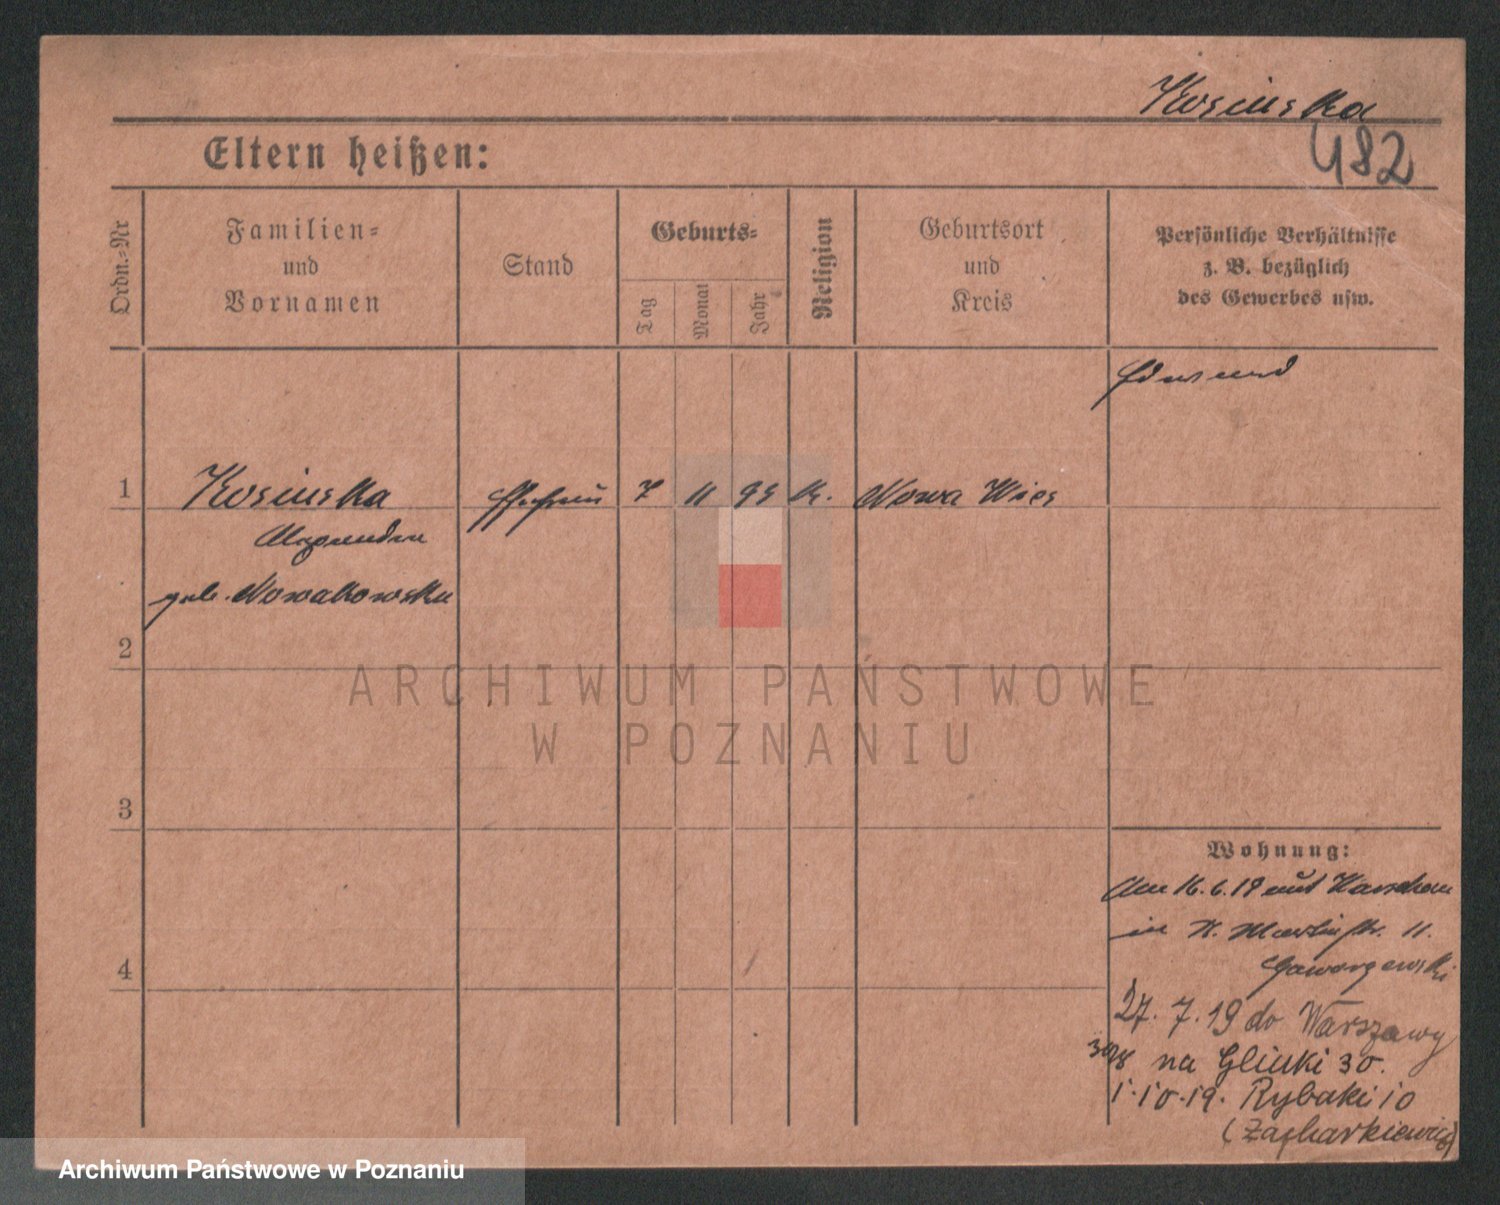 Kosinska
482
Eltern heißen:
Ordn.-Nr
Familien=
und
Vornamen
Stand
Geburts=
Tag
Monat
Jahr
Religion
Geburtsort
und
Kreis
Persönliche Verhältnisse
z. B. bezüglich
des Gewerbes usw.
1
Kosinska
geb. Nowakowska
Ehefrau
7
11
K.
Nowa Wies
2
3
4
Wohnung:
Am 16.6.19 aus Warschau
in St. Martinstr. 11.
27.7.19 do Warszawy
na Glinki 30.
1.10.19. Rybaki 10
(Zacharkiewicz)
ARCHIWUM PAŃSTWOWE
W POZNANIU
Archiwum Państwowe w Poznaniu